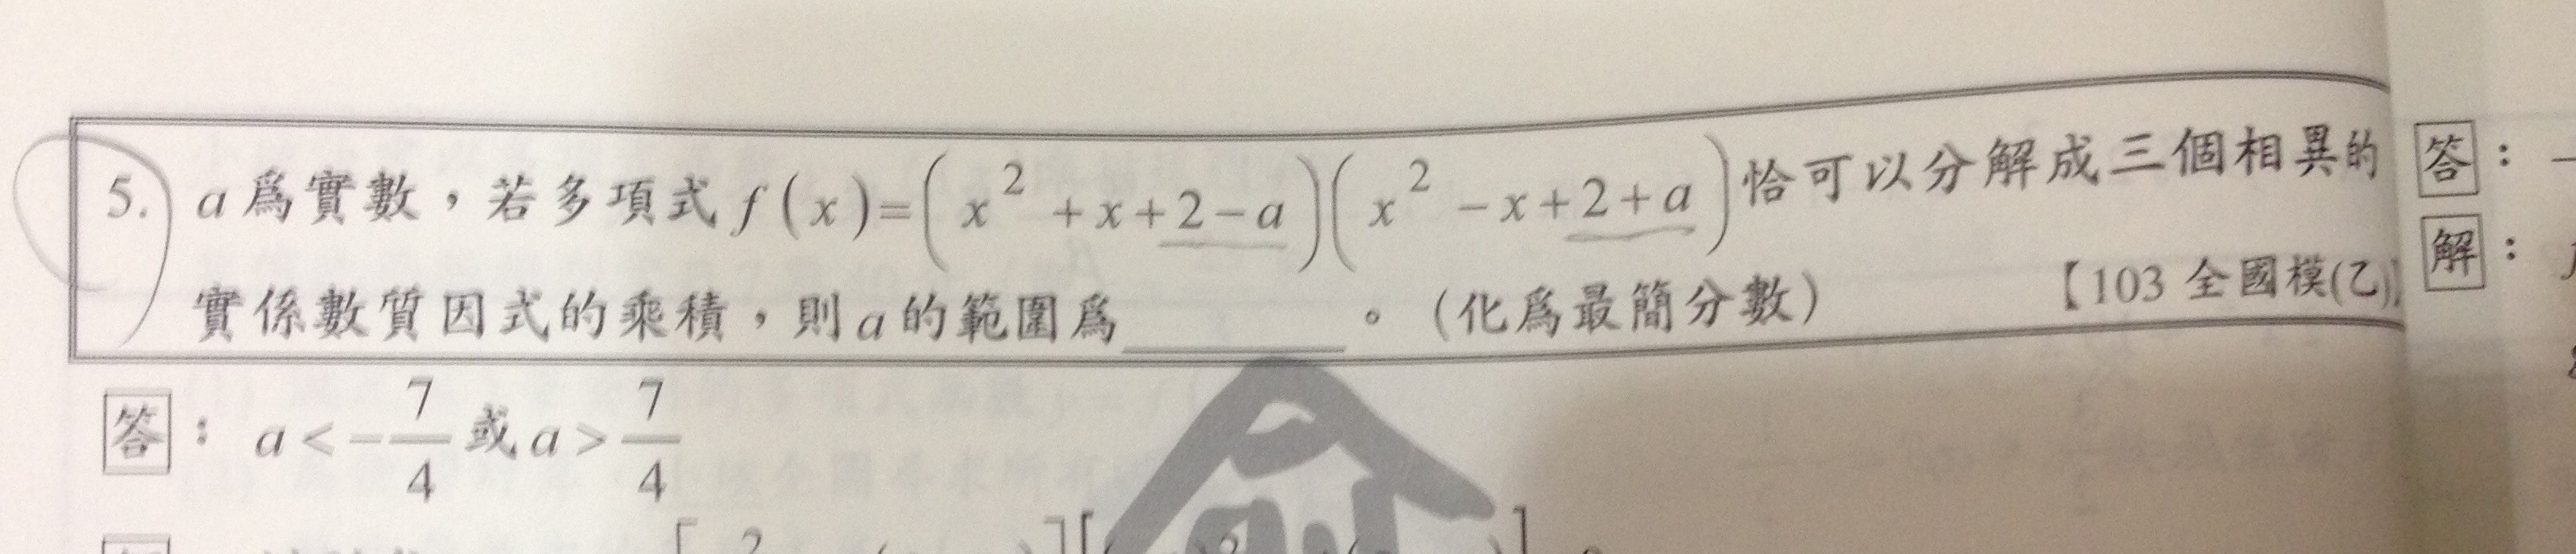 5. a為實數，若多項式 f(x)=(x²+x+2-a)(x²-x+2+a)恰可以分解成三個相異的
實係數質因式的乘積，則a的範圍為______。(化為最簡分數) 【103 全國模(乙)】
答：a<-7/4 或 a>7/4
答：
解：